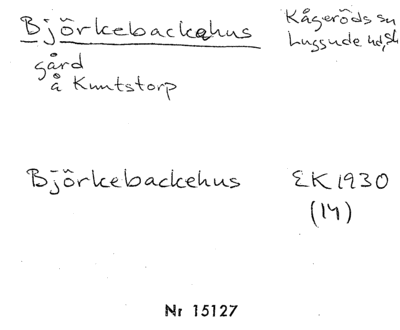 Björkebackehus
Kågeröds sn
Luggude hd, Sk
gård
å Knutstorp
Björkebackehus
EK 1930
(14)
Nr 15127